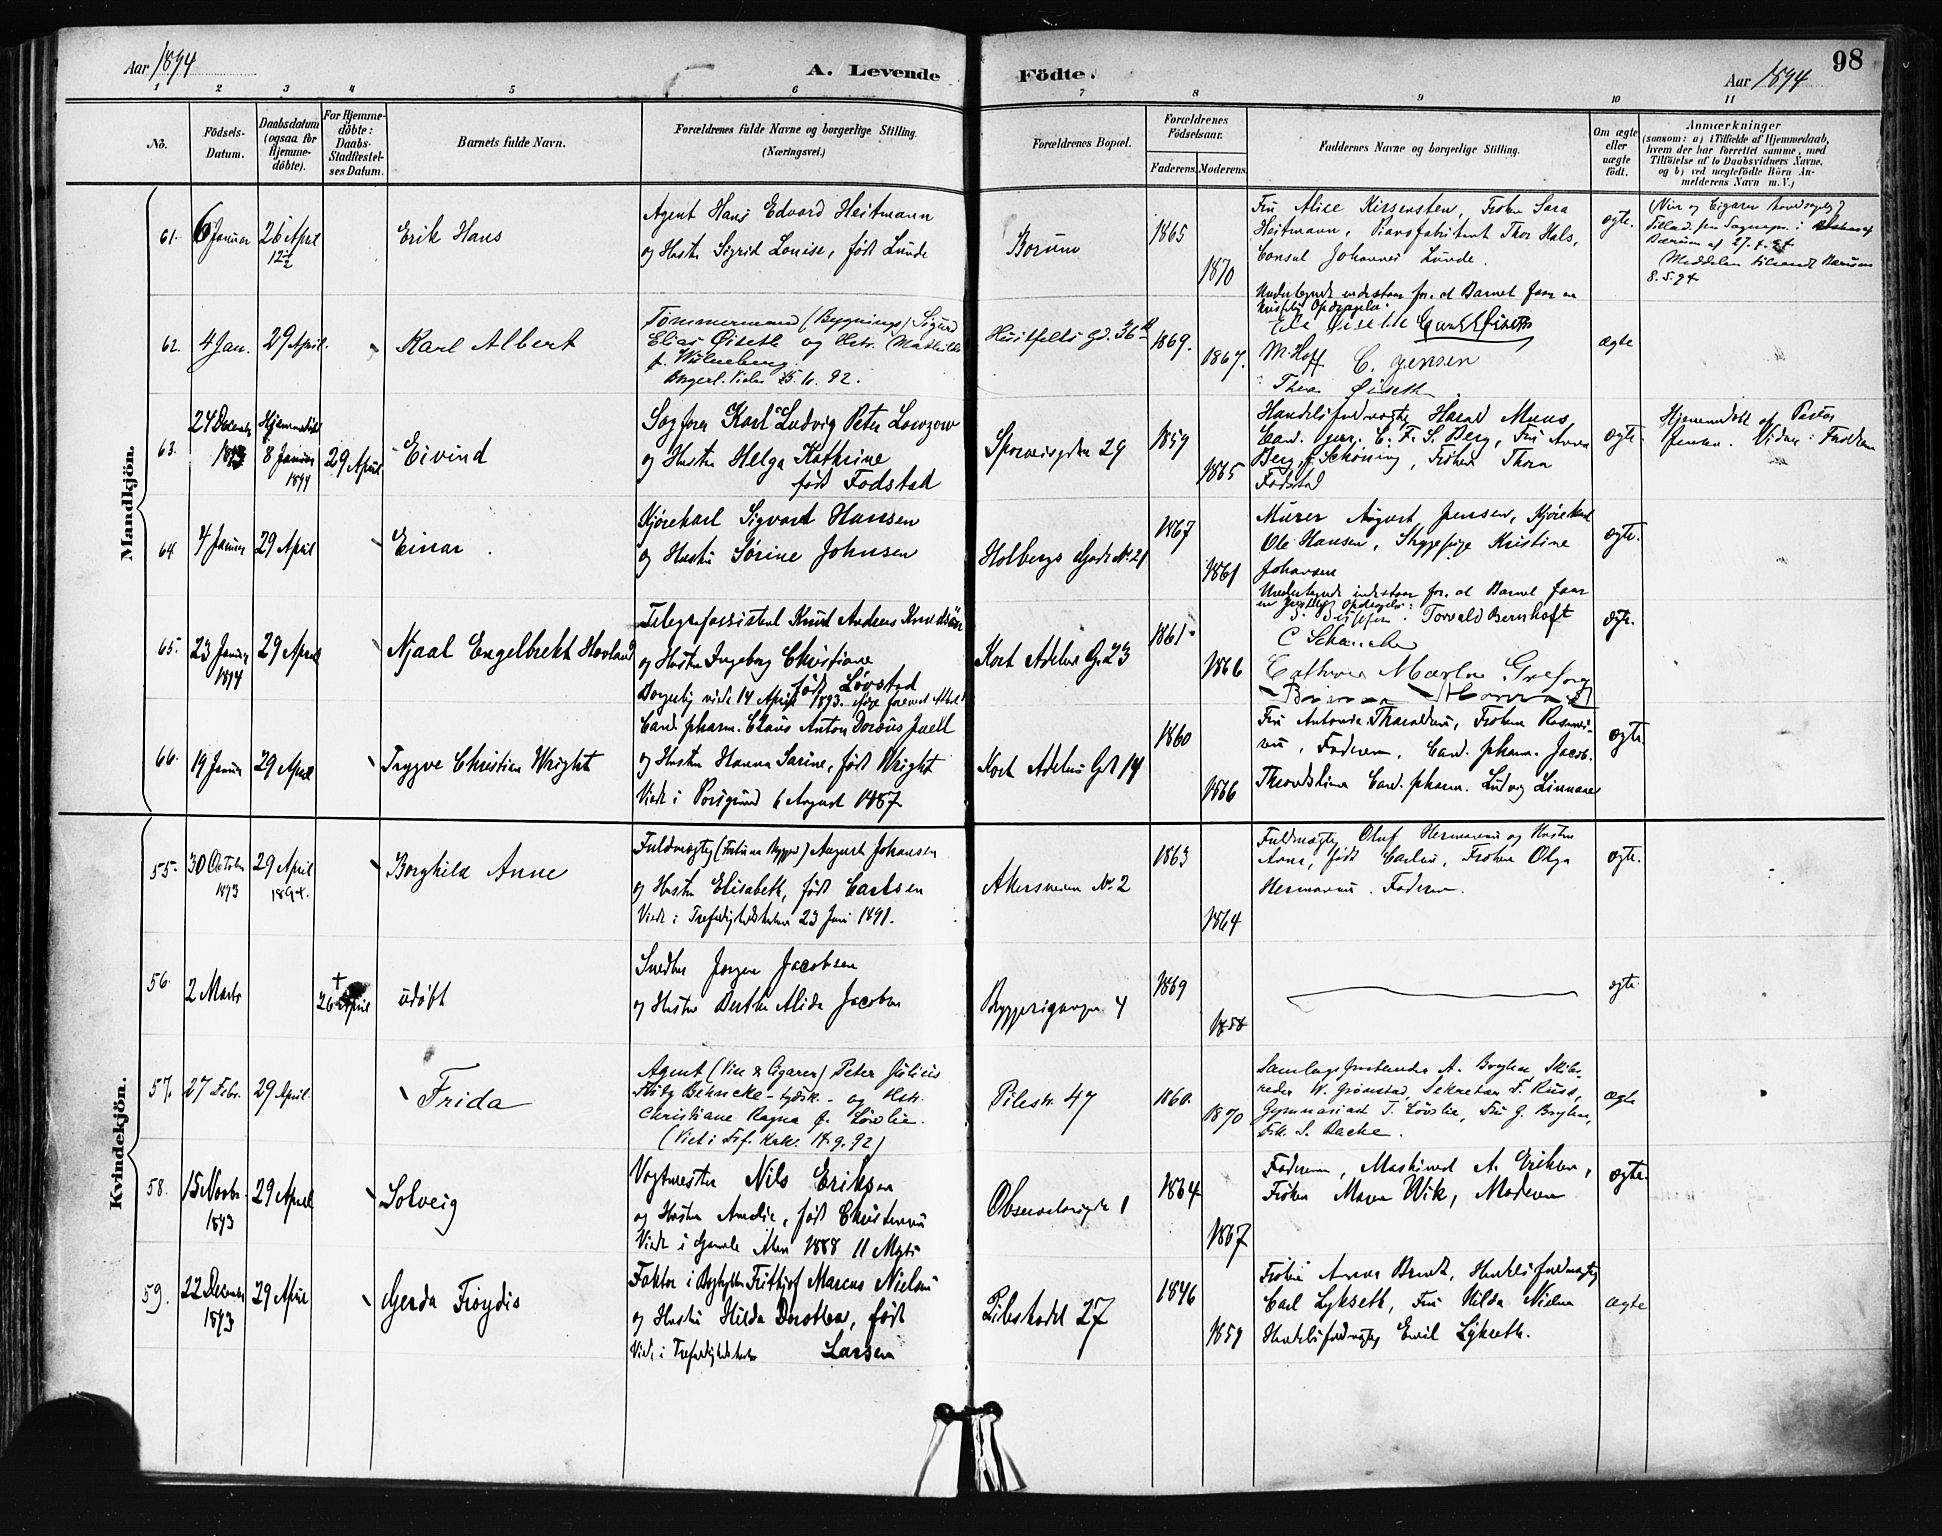 Aar 1894
A. Levende Födte.
98
Aar 1894
1 2 3 4 5 6 7 8 9 10 11
No.
Födsels-
Datum.
Daabsdatum
(ogsaa for
Hjemme-
döbte).
For Hjemme-
döbte:
Daabs-
Stadfæstel-
ses Datum.
Barnets fulde Navn.
Forældrenes fulde Navne og borgerlige Stilling.
(Næringsvei.)
Forældrenes Bopæl.
Forældrenes
Födselsaar.
Faderens. Moderens.
Faddernes Navne og borgerlige Stilling.
Om ægte
eller
uægte
födt.
Anmærkninger
(saasom: a) i Tilfælde af Hjemmedaab,
hvem der har forrettet samme, med
Tilföielse af to Daabsvidners Navne,
og b) ved uægtefödte Börn An-
melderens Navn m. V.)
Mandkjön.
61. 6 Januar 26 April
12½
Erik Hans
Agent Hans Edvard Heitmann
og Hustru Sigrid Louise, født Lunde
Bærum
1865
1870
Fru Alice Kiersensten, Frøken Sara
Heitmann, Pianofabrikant Thor Hals,
Consul Johannes Lunde.
ægte.
8.5.94
62. 4 Jan. 29 April.
Karl Albert
Tømmermand (Bygnings) Sigurd
Elias Øiseth og Hstr. Mathilde
Borgerl. Viet 25.6.92.
Huitfeldts Gd. 36
1869.
1867.
Undertegnede indestaar for, at Barnet faar en
kristelig Opdragelse:
M. Hoff C. Jensen
Thea Øiseth
ægte
63. 24 December
1893
Hjemmedøbt
8 Januar
1894
29 April
Eivind
Sagfører Karl Ludvig Peter Lowzow
og Hustru Helga Kathrine
født Fodstad
Sporveisgaden 29
1859
1865
Handelsfuldmægtig Harald Muus
Cand. jur. C. F. S. Berg, Fru Anna
Berg f. Schöning, Frøken Thora
Fodstad
ægte.
Hjemmedøbt af Pastor
Jensen. Vidner: Frøken
64. 4 Januar 29 April
Einar.
Kjørekarl Sigvart Hansen
og Hustru Sørine Johnsen
Holbergs Gade No. 21
1867
1861
Murer August Jensen, Kjørekarl
Ole Hansen, Strygepige Kristine
Johansen
ægte.
65. 23 Januar
1894
29 April
Njaal Engelbrekt Hovland
Telegrafassistent Knut Andreas Knudsön
og Hustru Ingeborg Christiane
født Løvstad
Borgerlig viede 14 April 1893.
Kort Adelers G. 23
1861
1866
Undertegnede indestaar for, at Barnet faar
en kristelig Opdragelse:
Torvald Bernhoft
C Schancke
ægte.
66. 19 Januar 29 April
Trygve Christian Wright
Cand. pharm. Claus Anton Dorous Juell
og Hustru Hanna Sarine, født Wright
Viede i Porsgrund 6 August 1887
Kort Adelers Gd. 14
1860
1866
Fru Antonie Tharaldsen, Frøken
Faderen, Cand. pharm. Jacob
Cand. pharm. Ludvig Linnaae
ægte.
Kvindekjön.
55. 30 October
1893
29 April
1894.
Borghild Anne
Fuldmægtig August Johansen
og Hustru Elisabeth, født Carlsen
Viede i Trefoldighedskirken 23 Juni 1891.
Akersveien No. 2
1863
1864
Fuldmægtig Oluf Hermansen og Hustru
Anna, født Carlsen, Frøken Olga
Hermansen. Faderen.
ægte.
56. 2 Marts
†
26 April
udøbt
Snedker Jørgen Jacobsen
og Hustru Berthe Alida Jacobsen
Bryggerigangen 4
1869
1858
ægte
57. 27 Febr. 29 April.
Frida
Agent (Vin & Cigarer) Peter Julius
Fritz Behncke - tydsk - og Hstr.
Christiane Ragna f. Løvlie.
(Viet i Trf. Kirke. 18.9.92)
Pilestr. 47
1860.
1870
Samlagsbestyrer A. Bryhn, Skibs-
reder W. Grønstad, Sekretær F. Russ,
Gymnasiast T. Løvlie, Fru G. Bryhn,
Frk. S. Backe.
ægte
58. 15 Novbr.
1893
29 April
Solveig
Vogtmester Nils Eriksen
og Hustru Amelie, født Christensen
Viede i Gamle Aker 1888 11 Marts
Observatoriegaden 1
1864
1867
Faderen, Maskinist A. Eriksen,
Frøken Maren Wik, Moderen
ægte.
59. 22 December
1893
29 April
Gerda Frøydis
Faktor i Bogtrykkeri Frithjof Marcus Nielsen
og Hustru Hilda Dorothea, født
Viede i Trefoldighedskirken Larsen
Pilestrædet 27
1846
1859
Frøken Anna Brandt, Handelsfuldmægtig
Carl Lykseth, Fru Hilda Nielsen
Handelsfuldmægtig Emil Lykseth.
ægte